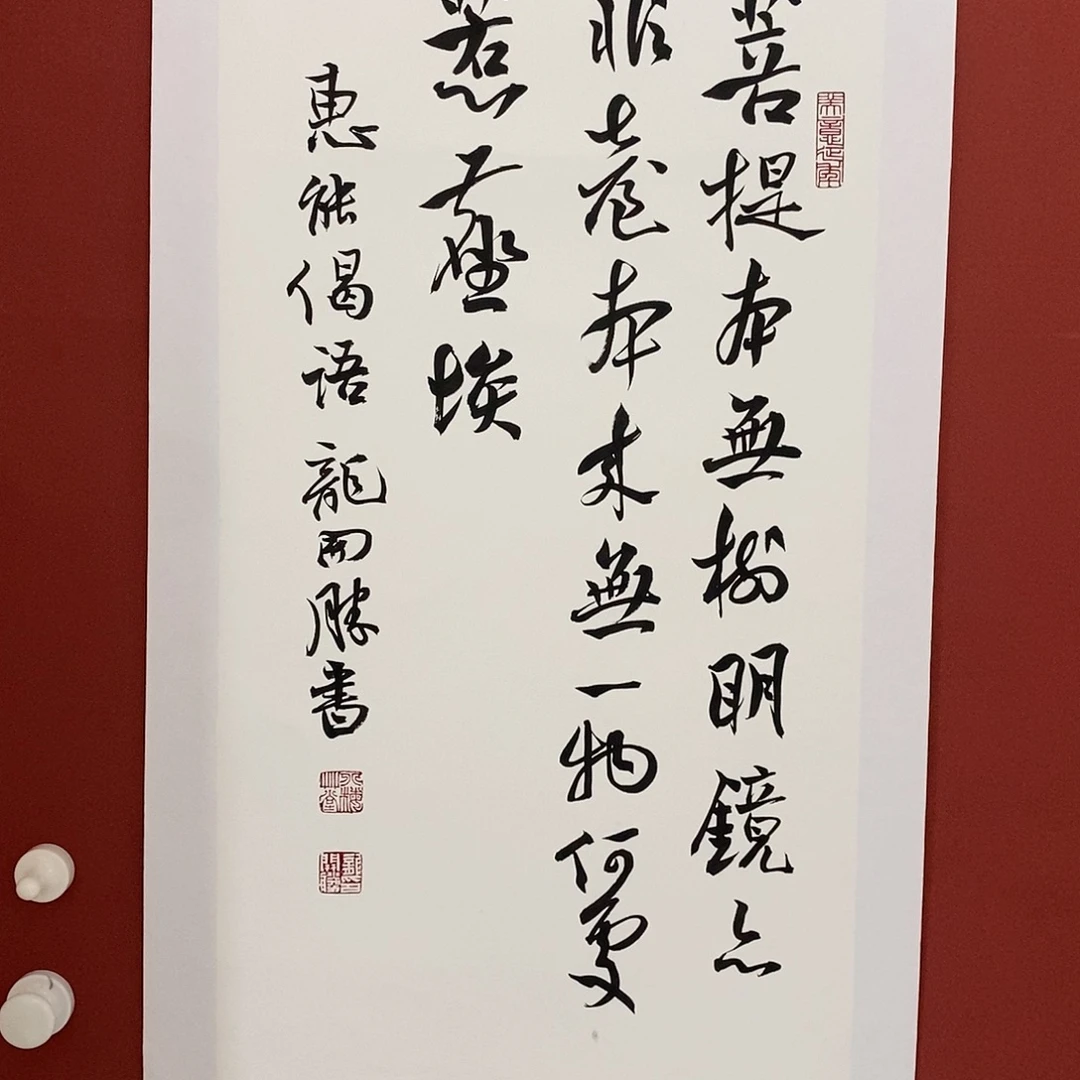 菩提本無樹明鏡亦
非臺本来無一物何處
惹塵埃
惠能偈语 龍開勝書